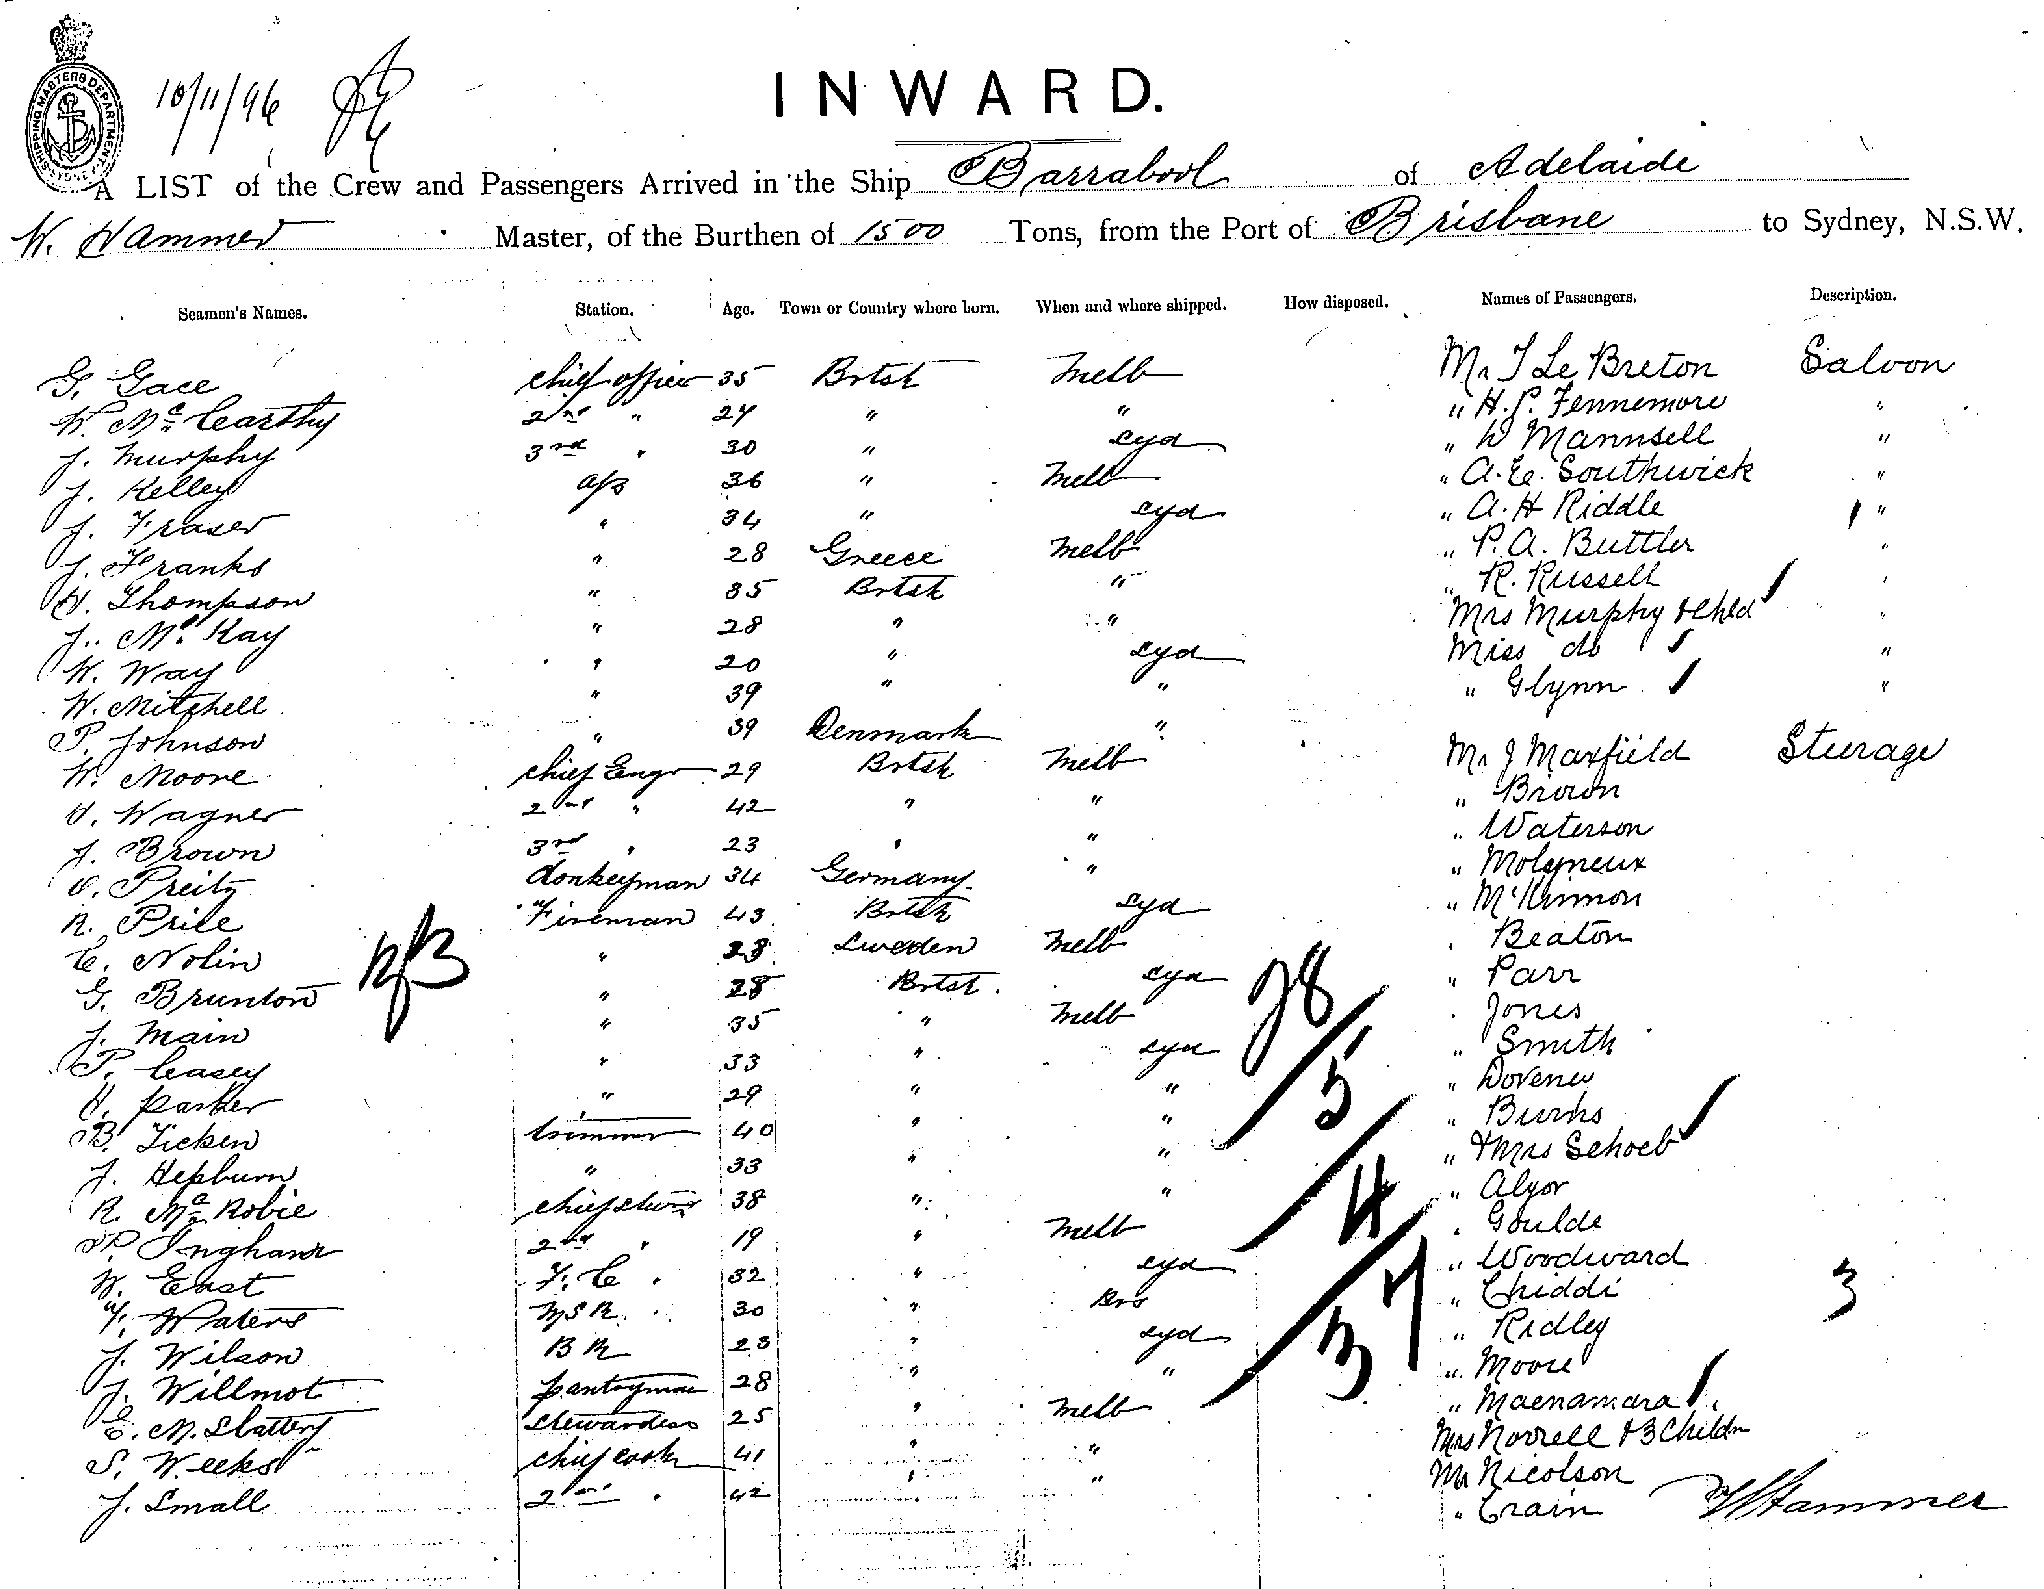 10/11/96
INWARD.
SHIPPING MASTERS DEPARTMENT SYDNEY
A LIST of the Crew and Passengers Arrived in the Ship Barrabool of Adelaide
W. Hammer Master, of the Burthen of 1500 Tons, from the Port of Brisbane to Sydney, N.S.W.
Seamen's Names. Station. Age. Town or Country where born. When and where shipped. How disposed. Names of Passengers. Description.
G. Gace chief officer 35 Brtsh Melb Mr T Le Breton Saloon
W. McCarthy 2nd " 24 " " " H. P. Fennemore "
J. Murphy 3rd " 30 " Syd " W Mannsell "
J. Kelley a/s 36 " Melb " A. E. Southwick "
J. Fraser " 34 " Syd " A. H Riddle "
J. Franks " 28 Greece Melb " P. A. Buttler "
H. Thompson " 35 Brtsh " " R. Russell "
J. McKay " 28 " " Mrs Murphy & Chld "
W. Way " 20 " Syd Miss do "
W. Mitchell " 39 " " " Glynn "
P. Johnson " 39 Denmark "
W. Moore chief Engr 29 Brtsh Melb Mr J Maxfield Steerage
H. Wagner 2nd " 42 " " " Brown
J. Brown 3rd " 23 " " " Waterson
O. Preitz donkeyman 34 Germany " " Molyneux
R. Price Fireman 43 Brtsh Syd " McKinnon
C. Nolin " 28 Sweden Melb " Beaton
G. Brunton " 28 Brtsh Syd " Parr
J. Main " 35 " Melb " Jones
P. Casey " 33 " Syd " Smith
H. Parker " 29 " " " Dovener
B. Ticken trimmer 40 " " " Burns
J. Hepburn " 33 " " " & Mrs Schoeb
R. McRobie chief stwd 38 " " " Algor
P. Ingham 2nd " 19 " Melb " Goulde
W. East F. C " 32 " Syd " Woodward
F. Waters M S R " 30 " Brs " Chiddi
J. Wilson B R 23 " Syd " Ridley
J. Willmot pantryman 28 " " " Moore
E. M. Slattery Stewardess 25 " Melb " Macnamara
S. Weeks chief cook 41 " " Mrs Norrell & 3 Childn
J. Small 2nd " 42 " " Mr Nicolson
" Crain
W Hammer
28
5
4
37
3